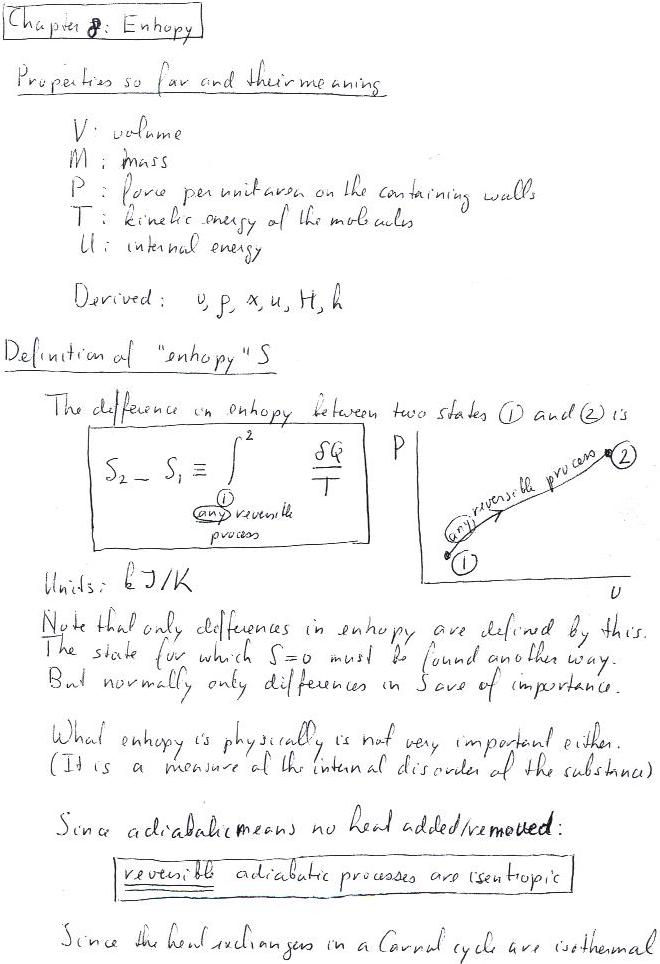 Chapter 8: Entropy
Properties so far and their meaning
V: volume
M: mass
P: force per unit area on the containing walls
T: kinetic energy of the molecules
U: internal energy
Derived: υ, ρ, x, u, H, h
Definition of "entropy" S
The difference in entropy between two states ① and ② is
S₂ − S₁ ≡ ∫ ① 2 δQ/T
any reversible
process
P
any reversible process
①
②
υ
Units: kJ/K
Note that only differences in entropy are defined by this.
The state for which S=0 must be found another way.
But normally only differences in S are of importance.
What entropy is physically is not very important either.
(It is a measure of the internal disorder of the substance)
Since adiabatic means no heat added/removed:
reversible adiabatic processes are isentropic
Since the heat exchangers in a Carnot cycle are isothermal